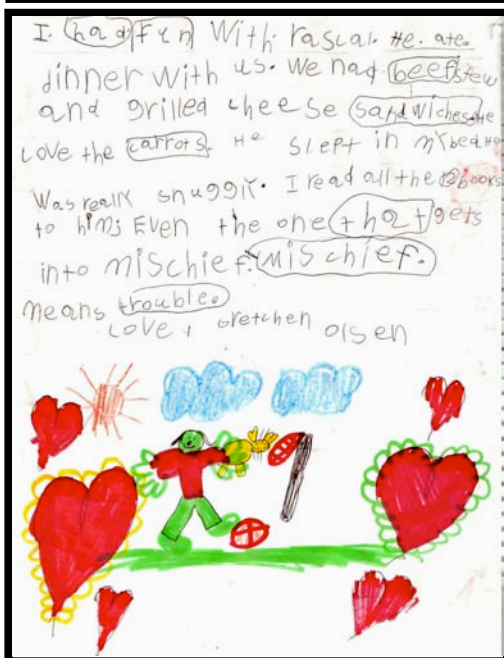 I had fun With rascal. He ate
dinner with us. We had beef stew
and grilled cheese sandwiches. He
Love the carrots. He slept in my bed. He
Was really snuggly. I read all the 12 books
to him; Even the one that gets
into mischief. mischief.
means trouble.
Love, Gretchen Olsen